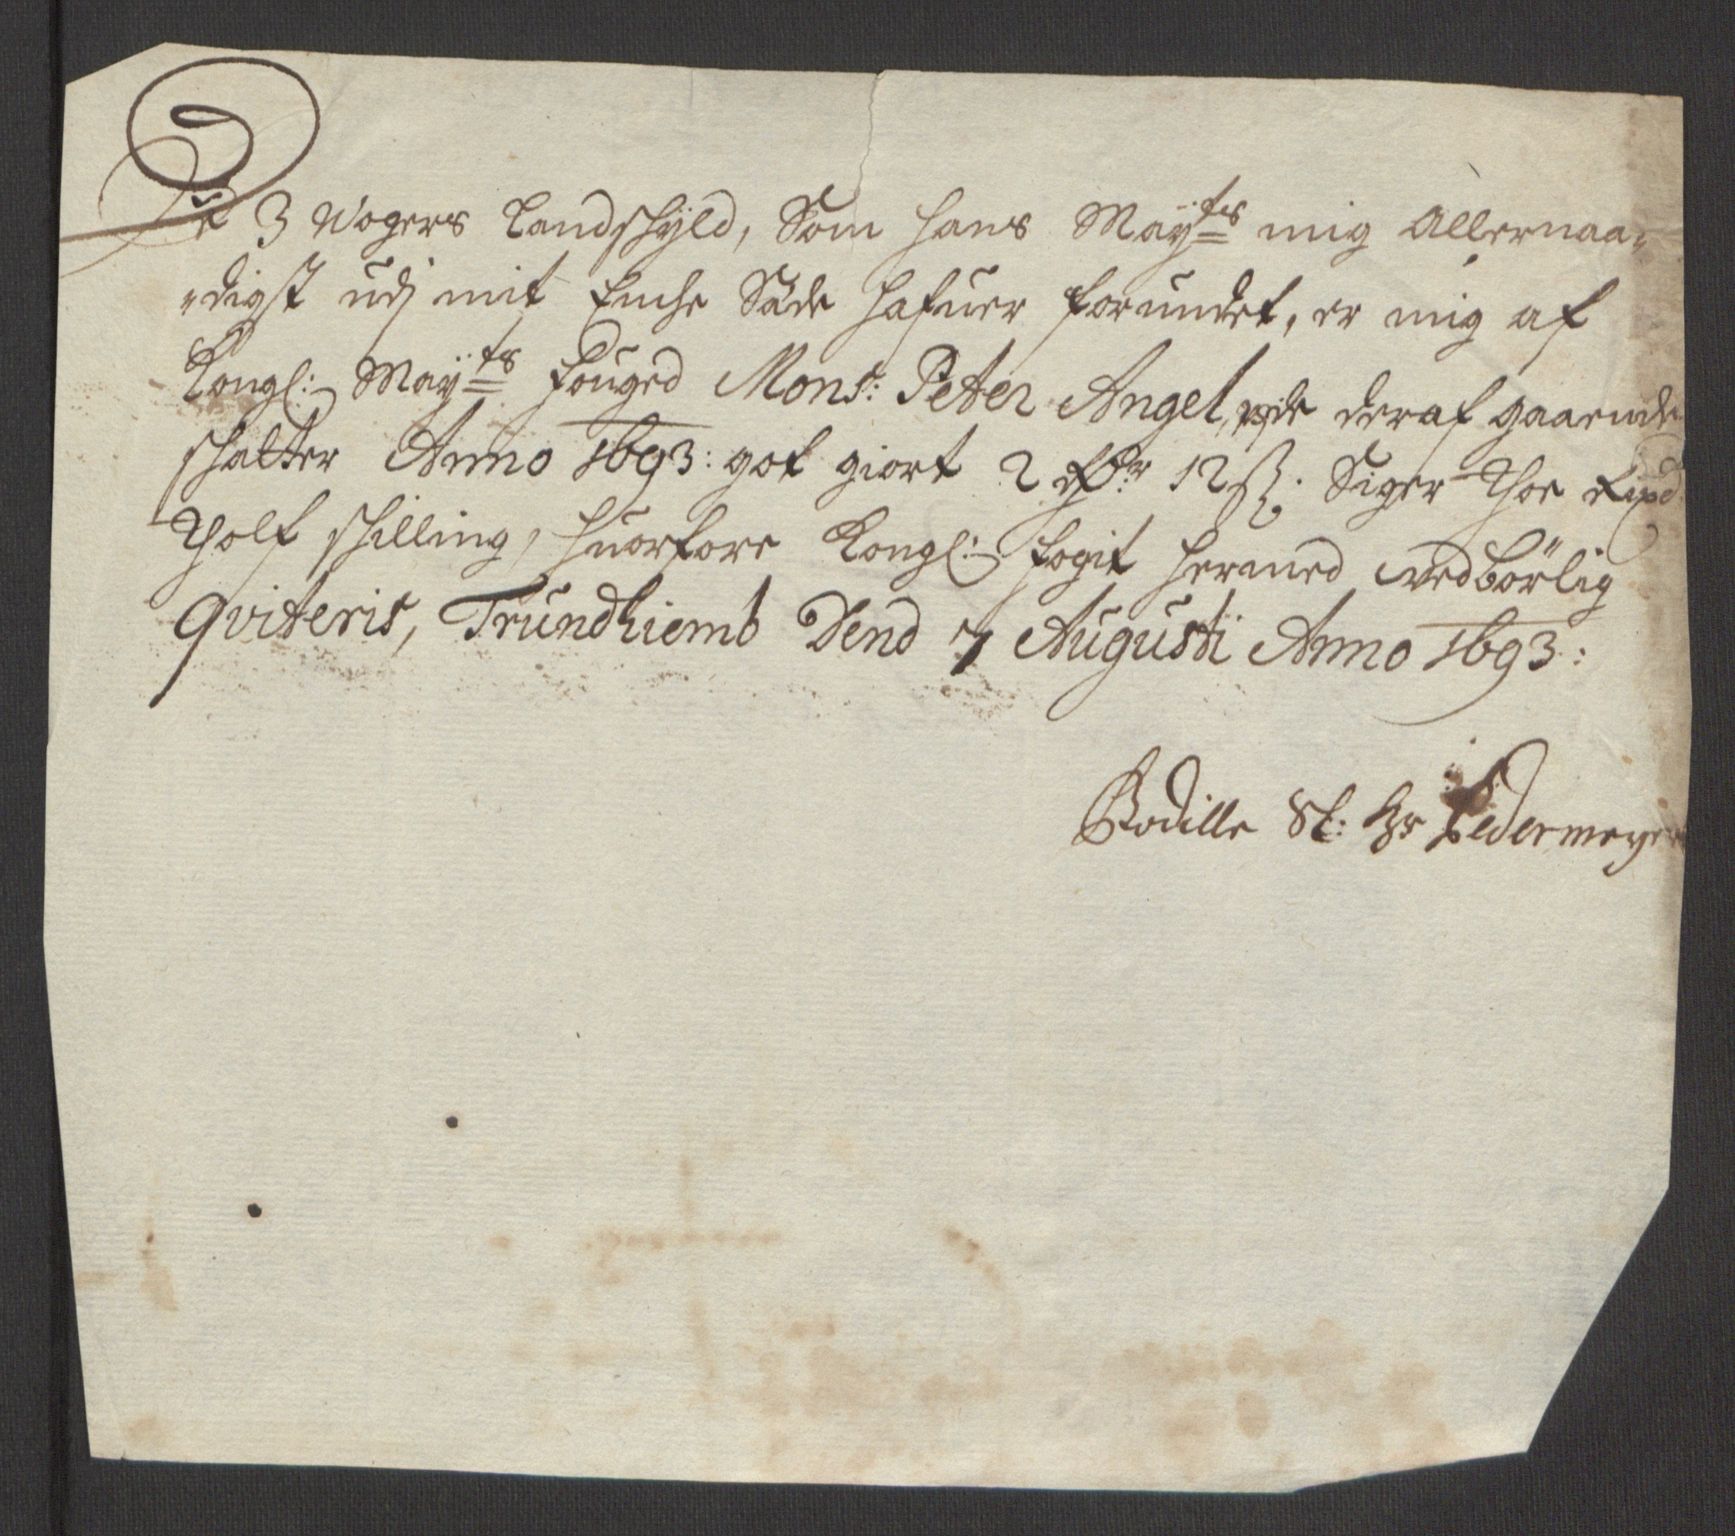 De 3 Wogers Landschÿld, Som hans Maÿ:ts mig Allernaa-
-digst udj mit Enche Sæde hafuer forundet, er mig af
Kongl: Maÿ:ts fouged Mons:r Peter Angel, de deraf gaaende
schatter Anno 1693: got giort 2 Rdr 12 s. Siger Thoe Rixd
Tholf schilling, huorfore Kongl: fogit hermed vedbörlig
qviteris, Trundhiemb Dend 7 Augusti Anno 1693:
Bodille Sl: Hr Ledermeyers